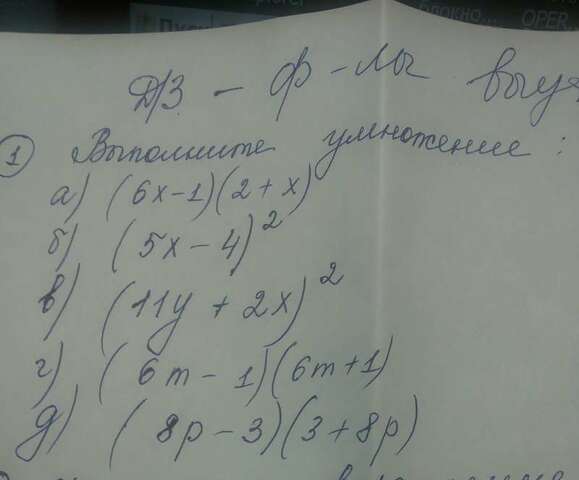 БЛОКНО...
OPER...
Д/З - Ф-лы выуч
1 Выполните умножение:
а) (6x-1)(2+x)
б) (5x-4)²
в) (11y+2x)²
г) (6m-1)(6m+1)
д) (8p-3)(3+8p)